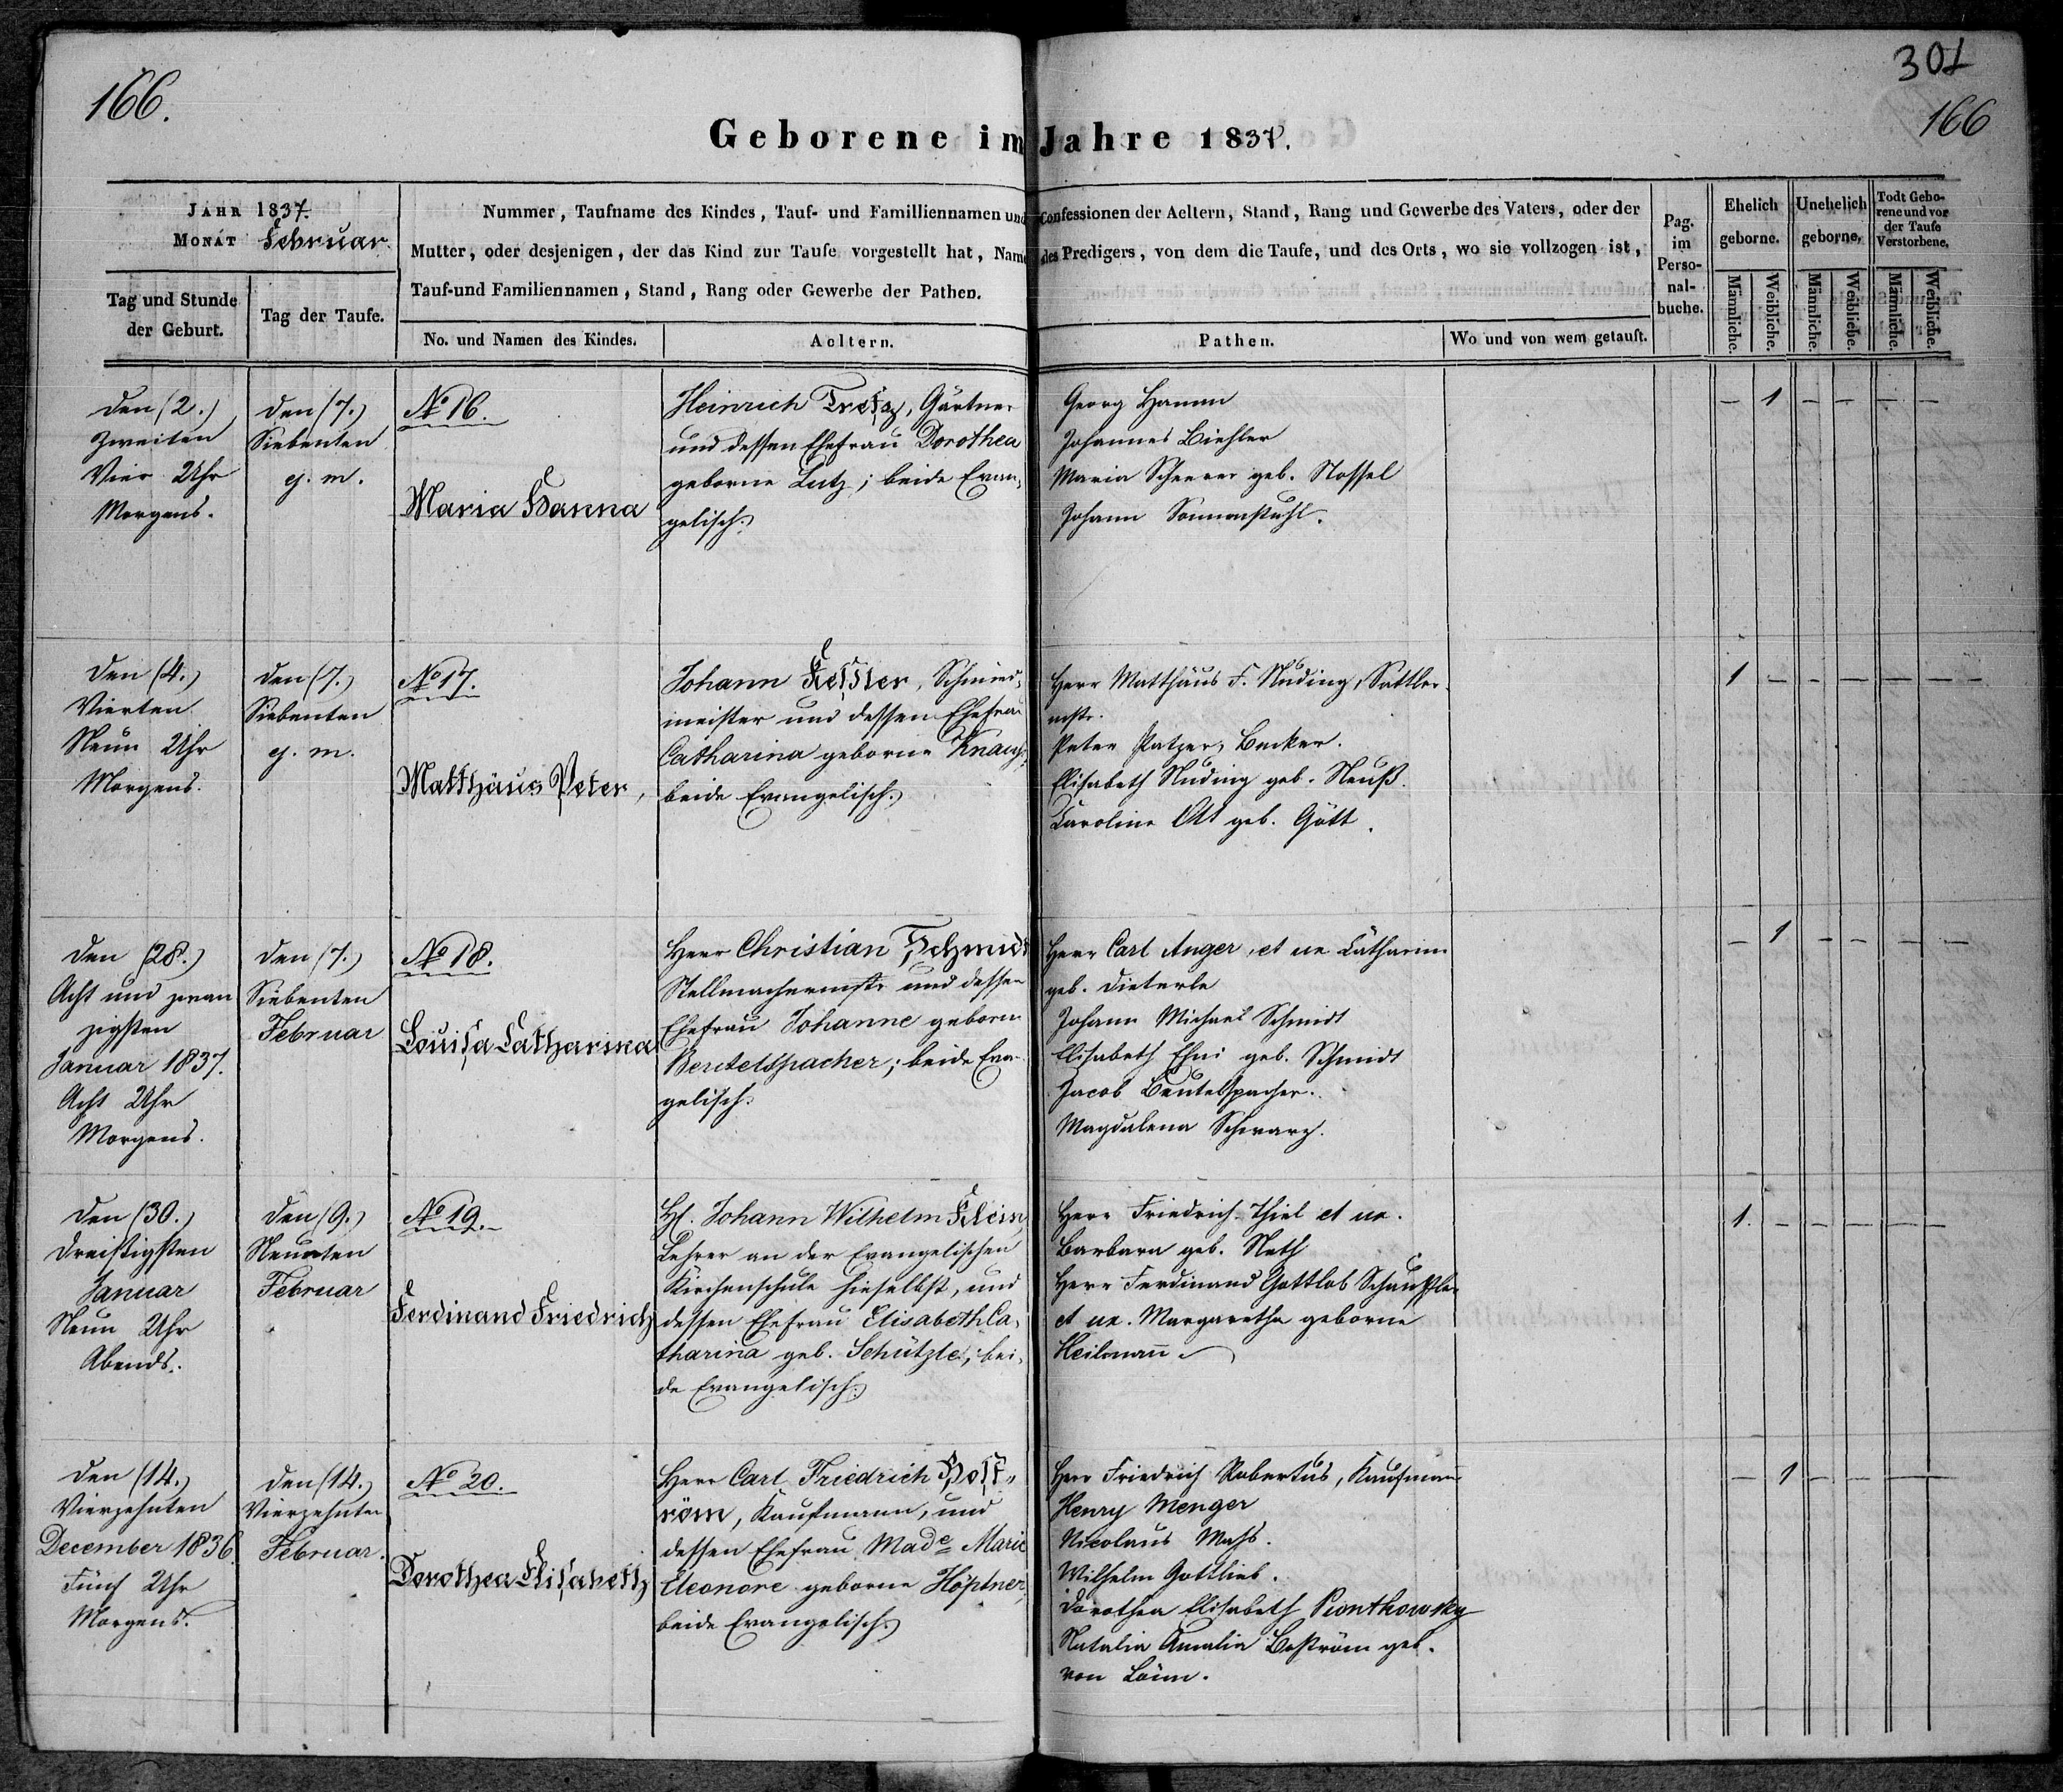 166.
301
166
Geborene im Jahre 1837.
JAHR 1837.
MONAT Februar.
Nummer, Taufname des Kindes, Tauf- und Familliennamen und Confessionen der Aeltern, Stand, Rang und Gewerbe des Vaters, oder der
Mutter, oder desjenigen, der das Kind zur Taufe vorgestellt hat, Name des Predigers, von dem die Taufe, und des Orts, wo sie vollzogen ist,
Tauf-und Familiennamen, Stand, Rang oder Gewerbe der Pathen.
Tag und Stunde
der Geburt.
Tag der Taufe.
No. und Namen des Kindes.
Aeltern.
Pathen.
Wo und von wem getauft.
Pag.
im
Perso-
nal-
buche.
Ehelich
geborne.
Unehelich
geborne.
Todt Gebo-
rene und vor
der Taufe
Verstorbene.
Männliche.
Weibliche.
Männliche.
Weibliche.
Männliche.
Weibliche.
den (2.)
Zweiten
Vier Uhr
Morgens.
den (7.)
Siebenten
ej. m.
No 16.
Maria Hanna
Heinrich Tretz, Gärtner
und dessen Ehefrau Dorothea
geborne Lutz; beide Evan-
gelisch.
Georg Hamm
Johannes Biehler
Maria Scheerer geb. Stossel
Johann Sonnenstuhl.
— 1 — — — —
den (4.)
Vierten
Neun Uhr
Morgens.
den (7.)
Siebenten
ej. m.
No 17.
Matthäus Peter,
Johann Keßler, Schmied-
meister und dessen Ehefrau
Catharina geborne Knaus,
beide Evangelisch.
Herr Matthäus F. Nuding, Sattler-
mstr.
Peter Patzer, Becker.
Elisabeth Nuding geb. Neuß.
Caroline Ott geb. Gött.
1 — — — — —
den (28.)
Acht und zwan
zigsten
Januar 1837.
Acht Uhr
Morgens.
den (7.)
Siebenten
Februar
No 18.
Louisa Catharina
Herr Christian Schmidt
Stellmachermstr und dessen
Ehefrau Johanne geborne
Beutelspacher; beide Evan-
gelisch.
Herr Carl Anger, et ux Catharina
geb. Dieterle
Johann Michael Schmidt
Elisabeth Ehni geb. Schmidt
Jacob Beutelspacher.
Magdalena Schwarz.
— 1 — — — —
den (30.)
Dreißigsten
Januar
Neun Uhr
Abends.
den (9.)
Neunten
Februar
No 19.
Ferdinand Friedrich
H. Johann Wilhelm Klein,
Lehrer an der Evangelischen
Kirchenschule hieselbst, und
dessen Ehefrau Elisabeth Ca-
tharina geb. Schützle, bei-
de Evangelisch.
Herr Friedrich Thiel et ux.
Barbara geb. Nath
Herr Ferdinand Gottlob Schaufler
et ux. Margaretha geborne
Heilmann
1. — — — — —
den (14.)
Vierzehnten
December 1836.
Fünf Uhr
Morgens.
den (14.)
Vierzehnten
Februar.
No 20.
Dorothea Elisabeth
Herr Carl Friedrich Bost-
röm, Kaufmann, und
dessen Ehefrau Made Marie
Eleonore geborne Höptner,
beide Evangelisch.
Herr Friedrich Robertus, Kaufmann
Henry Menger
Nicolaus Mahs.
Wilhelm Gottlieb.
Dorothea Elisabeth Pionthowsky
Natalia Amalia Boström geb.
von
— 1 — — — —